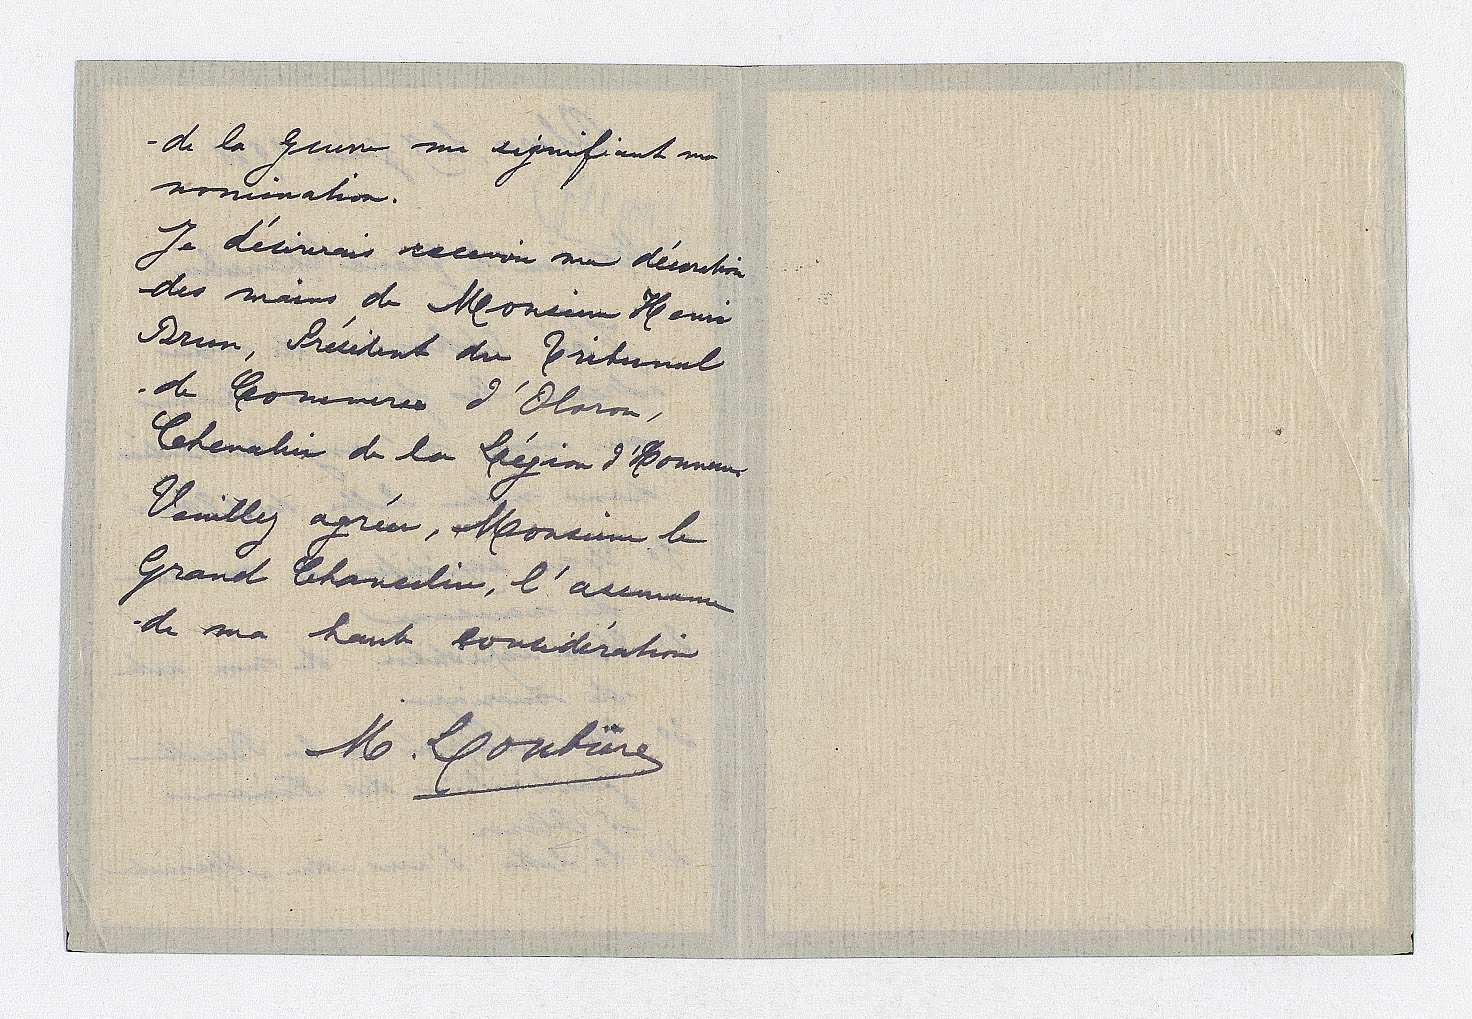 de la Guerre me signifiant ma
nomination.
Je désirerais recevoir ma décoration
des mains de Monsieur Henri
Brun, Président du Tribunal
de Commerce d'Oloron,
Chevalier de la Légion d'Honneur
Veuillez agréer, Monsieur le
Grand Chancelier, l'assurance
de ma haute considération
M. Loubière